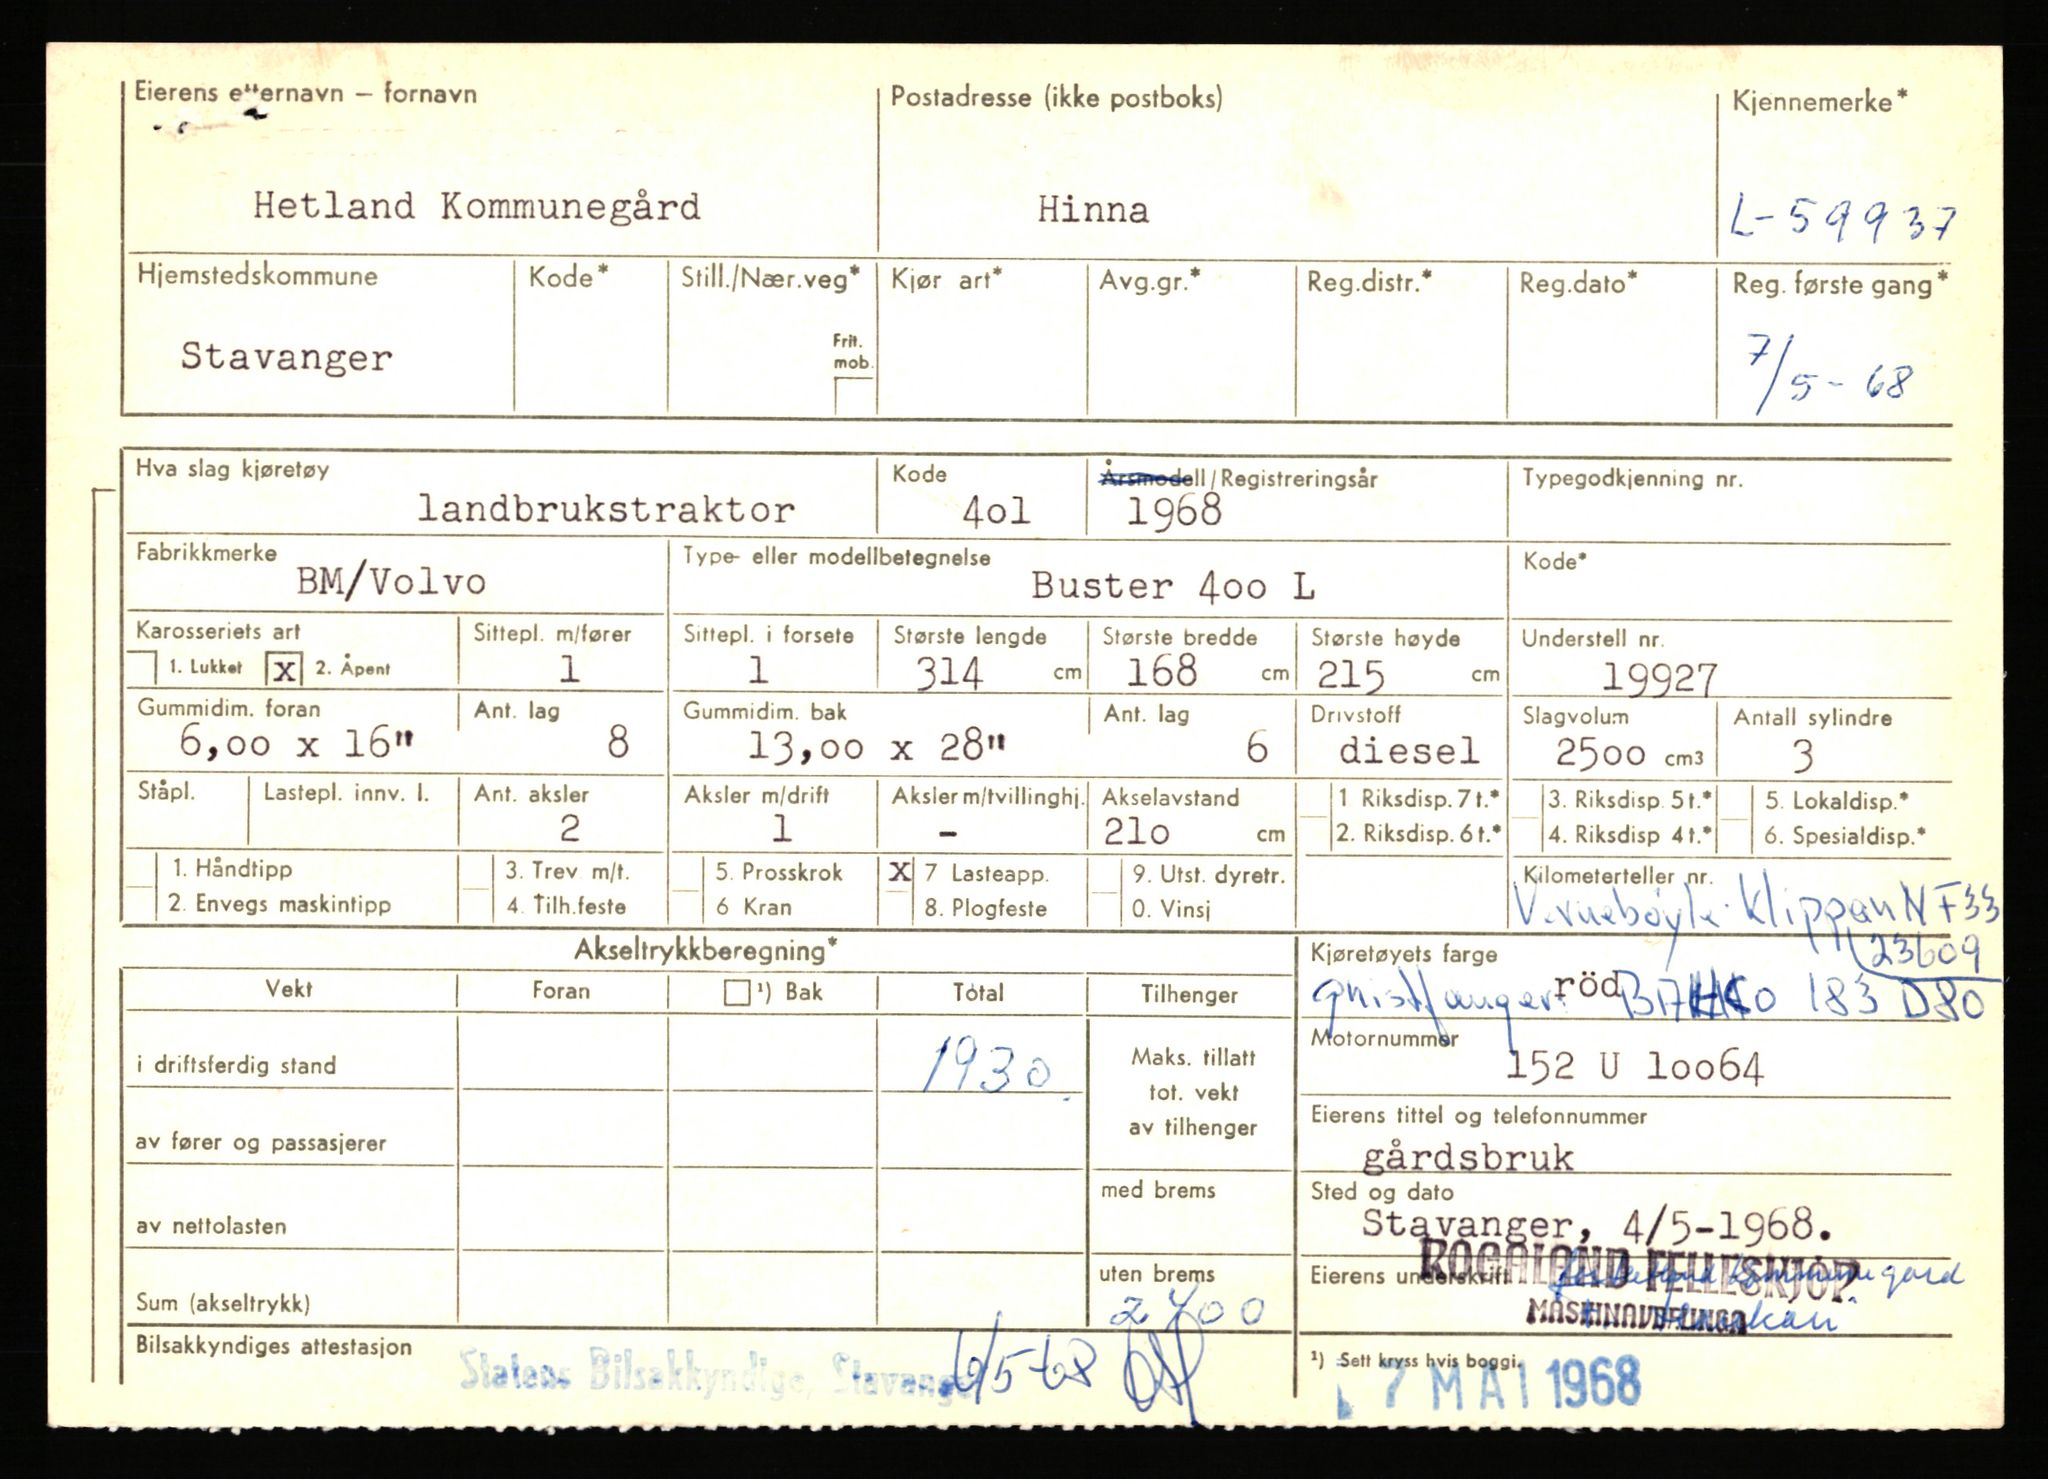 Eierens etternavn – fornavn Postadresse (ikke postboks) Kjennemerke*
Hetland Kommunegård Hinna L-59937
Hjemstedskommune Kode* Still./Nær.veg* Kjør art* Avg.gr.* Reg.distr.* Reg.dato* Reg. første gang*
Stavanger Frit. mob. 7/5-68
Hva slag kjøretøy Kode Årsmodell/Registreringsår Typegodkjenning nr.
landbrukstraktor 4o1 1968
Fabrikkmerke Type- eller modellbetegnelse Kode*
BM/Volvo Buster 4oo L
Karosseriets art Sittepl. m/fører Sittepl. i forsete Største lengde Største bredde Største høyde Understell nr.
1. Lukket x 2. Åpent 1 1 314 cm 168 cm 215 cm 19927
Gummidim. foran Ant. lag Gummidim. bak Ant. lag Drivstoff Slagvolum Antall sylindre
6,oo x 16" 8 13,oo x 28" 6 diesel 25oo cm3 3
Ståpl. Lastepl. innv. l. Ant. aksler Aksler m/drift Aksler m/tvillinghj. Akselavstand 1 Riksdisp. 7 t.* 3. Riksdisp. 5 t.* 5. Lokaldisp.*
2 1 - 21o cm 2. Riksdisp. 6 t.* 4. Riksdisp 4 t.* 6. Spesialdisp.*
1. Håndtipp 3. Trev m/t. 5. Prosskrok x 7 Lasteapp. 9. Utst. dyretr. Kilometerteller nr.
2. Envegs maskintipp 4. Tilh.feste 6 Kran 8. Plogfeste 0. Vinsj Klippan NF33
23609
Akseltrykkberegning* Kjøretøyets farge
Vekt Foran ¹) Bak Total Tilhenger röd
gnistfanger: BAHCO 183 D80
Motornummer
i driftsferdig stand 1930 Maks. tillatt tot. vekt av tilhenger 152 U 1oo64
Eierens tittel og telefonnummer
av fører og passasjerer gårdsbruk
med brems Sted og dato
av nettolasten Stavanger, 4/5-1968.
ROGALAND FELLESKJØP
uten brems Eierens underskrift Kommunegard
MASKINAVDELINGA
Sum (akseltrykk) 2400
Bilsakkyndiges attestasjon Statens Bilsakkyndige, Stavanger 6/5-68 ¹) Sett kryss hvis boggi.
7 MAI 1968